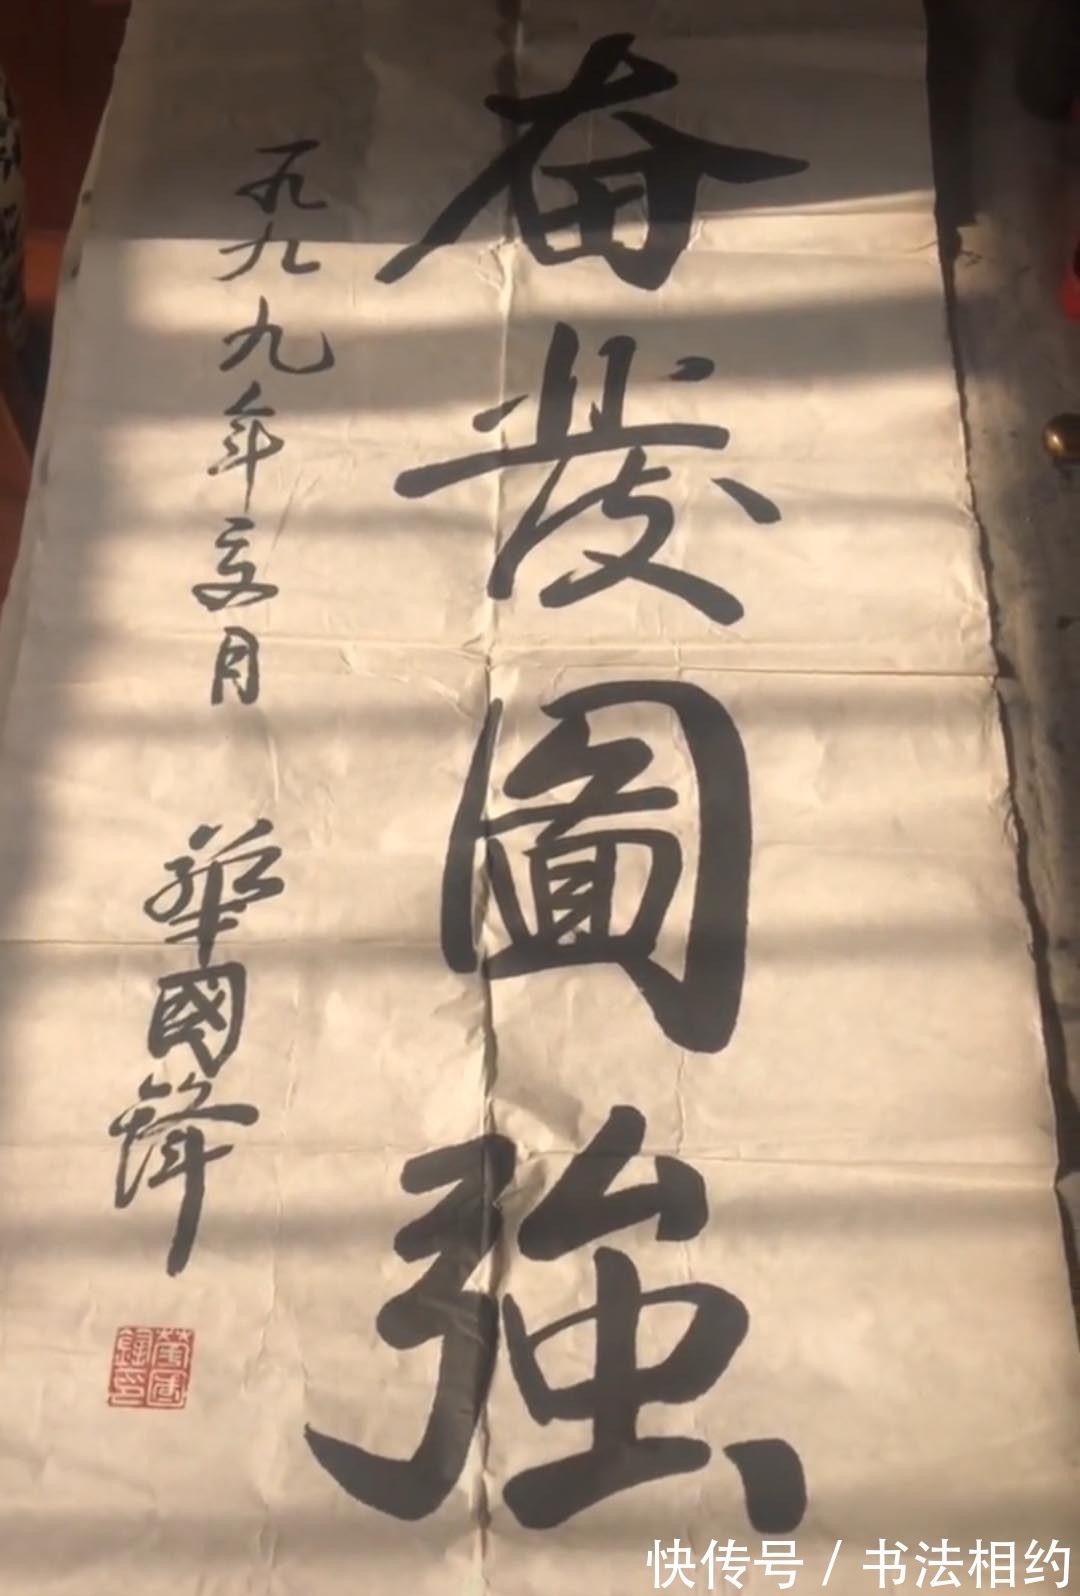 奮發圖強
一九九九年六月
華國鋒
華國鋒印
快传号 / 书法相约